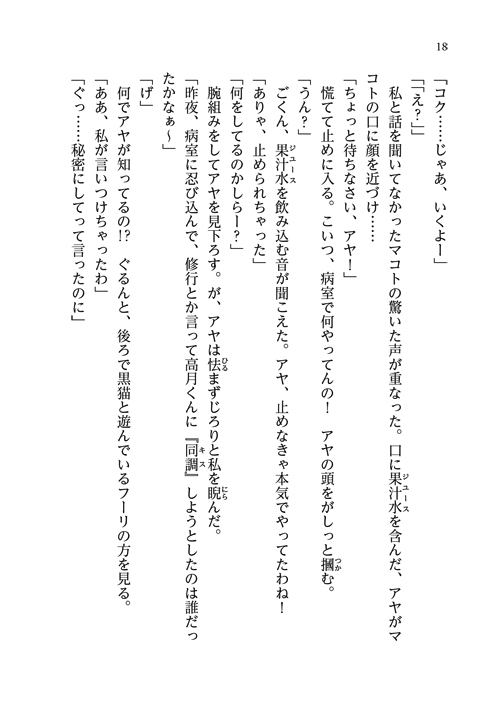 18
「コク……じゃあ、いくよー」
「「え？」」
私と話を聞いてなかったマコトの驚いた声が重なった。口に果汁水を含んだ、アヤがマ
コトの口に顔を近づけ……
「ちょっと待ちなさい、アヤ！」
慌てて止めに入る。こいつ、病室で何やってんの！　アヤの頭をがしっと摑む。
「うん？」
ごくん、果汁水を飲み込む音が聞こえた。アヤ、止めなきゃ本気でやってたわね！
「ありゃ、止められちゃった」
「何をしてるのかしらー？」
腕組みをしてアヤを見下ろす。が、アヤは怯まずじろりと私を睨んだ。
「昨夜、病室に忍び込んで、修行とか言って高月くんに『同調』しようとしたのは誰だっ
たかなぁ～」
「げ」
何でアヤが知ってるの!?　ぐるんと、後ろで黒猫と遊んでいるフーリの方を見る。
「ああ、私が言いつけちゃったわ」
「ぐっ……秘密にしてって言ったのに」